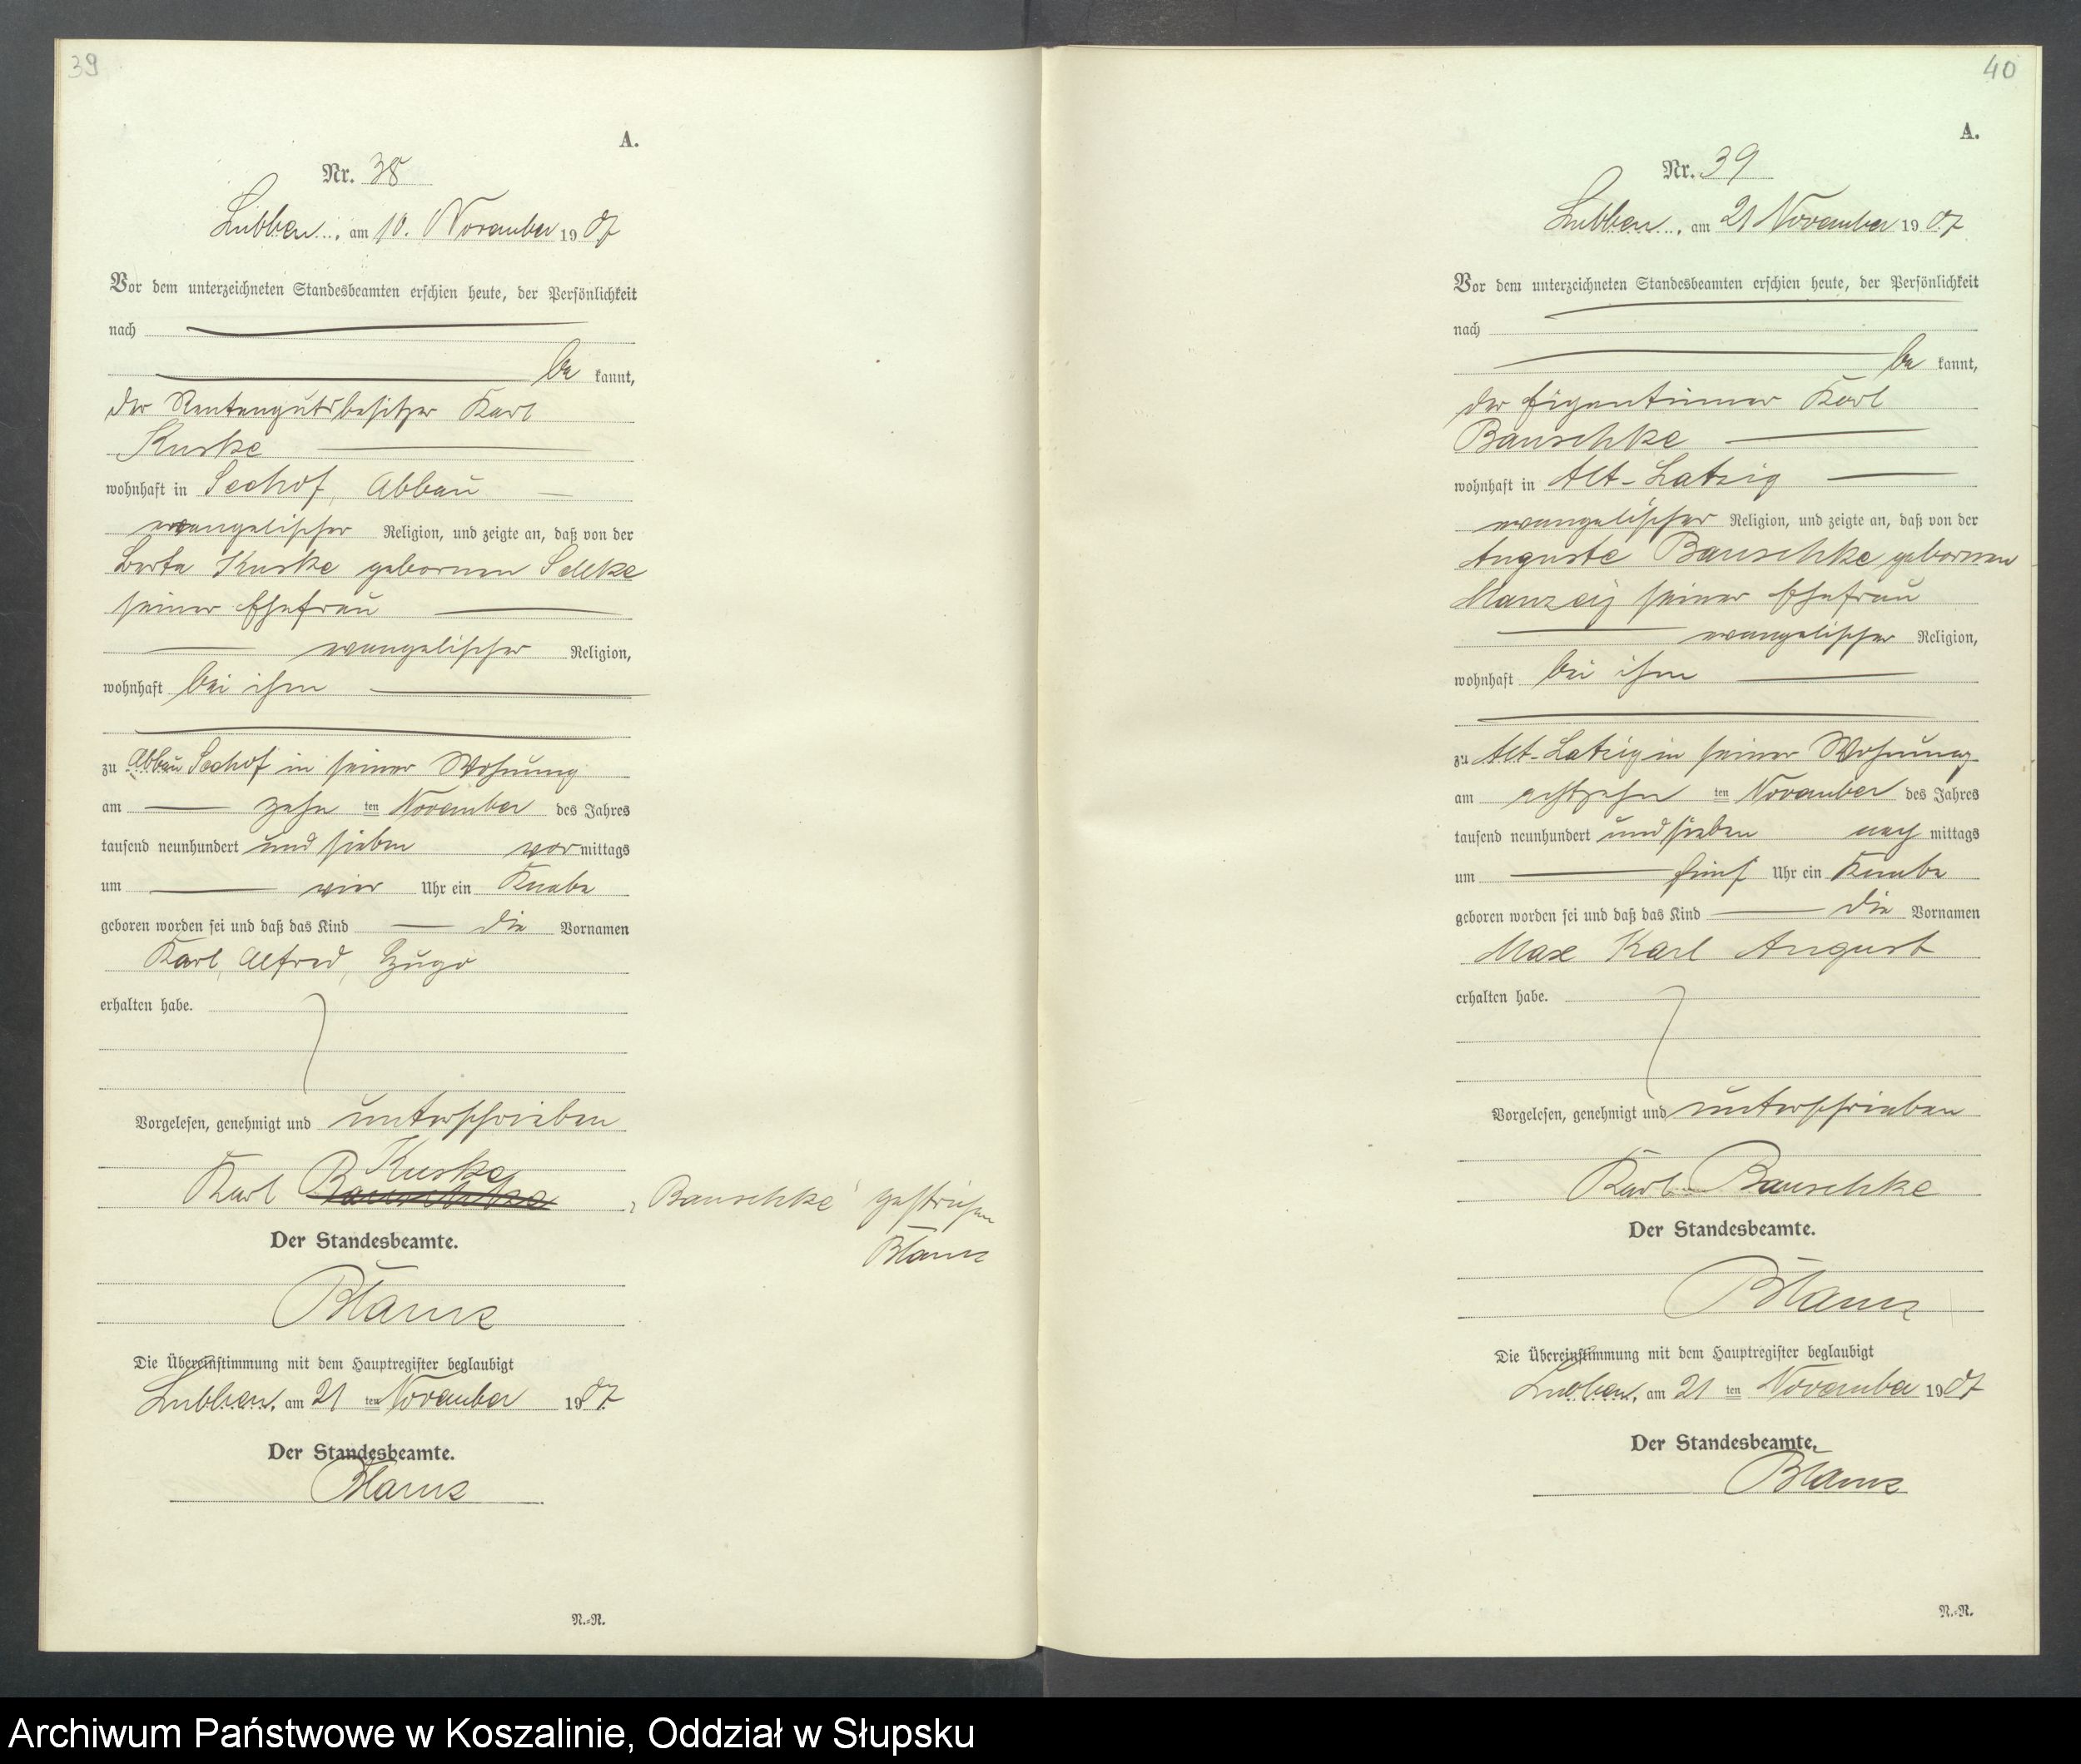 39
A.
Nr. 38
Lubben, am 10. November 1907
Vor dem unterzeichneten Standesbeamten erschien heute, der Persönlichkeit
nach
be kannt,
der Rentengutsbesitzer Karl
Kuske
wohnhaft in Seehof, Abbau
evangelischer Religion, und zeigte an, daß von der
Berta Kuske geborenen Sellke
seiner Ehefrau
evangelischer Religion,
wohnhaft bei ihm
zu Abbau Seehof in seiner Wohnung
am zehn ten November des Jahres
tausend neunhundert und sieben vor mittags
um vier Uhr ein Knabe
geboren worden sei und daß das Kind die Vornamen
Karl, Alfred, Hugo
erhalten habe.
Vorgelesen, genehmigt und unterschrieben
Kuske
Karl Bauschke
„Bauschke" gestrichen
Der Standesbeamte.
Die Übereinstimmung mit dem Hauptregister beglaubigt
Lubben, am 21 ten November 1907.
Der Standesbeamte.
N.=N.
40
A.
Nr. 39
Lubben, am 21 November 1907
Vor dem unterzeichneten Standesbeamten erschien heute, der Persönlichkeit
nach
be kannt,
der Eigentümer Karl
Bauschke
wohnhaft in Alt-Latzig
evangelischer Religion, und zeigte an, daß von der
Auguste Bauschke geborenen
seiner Ehefrau
evangelischer Religion,
wohnhaft bei ihm
zu Alt-Latzig in seiner Wohnung
am achtzehn ten November des Jahres
tausend neunhundert und sieben nach mittags
um fünf Uhr ein Knabe
geboren worden sei und daß das Kind die Vornamen
Max Karl August
erhalten habe.
Vorgelesen, genehmigt und unterschrieben
Karl Bauschke
Der Standesbeamte.
Die Übereinstimmung mit dem Hauptregister beglaubigt
Lubben, am 21 ten November 1907
Der Standesbeamte.
N.=N.
Archiwum Państwowe w Koszalinie, Oddział w Słupsku